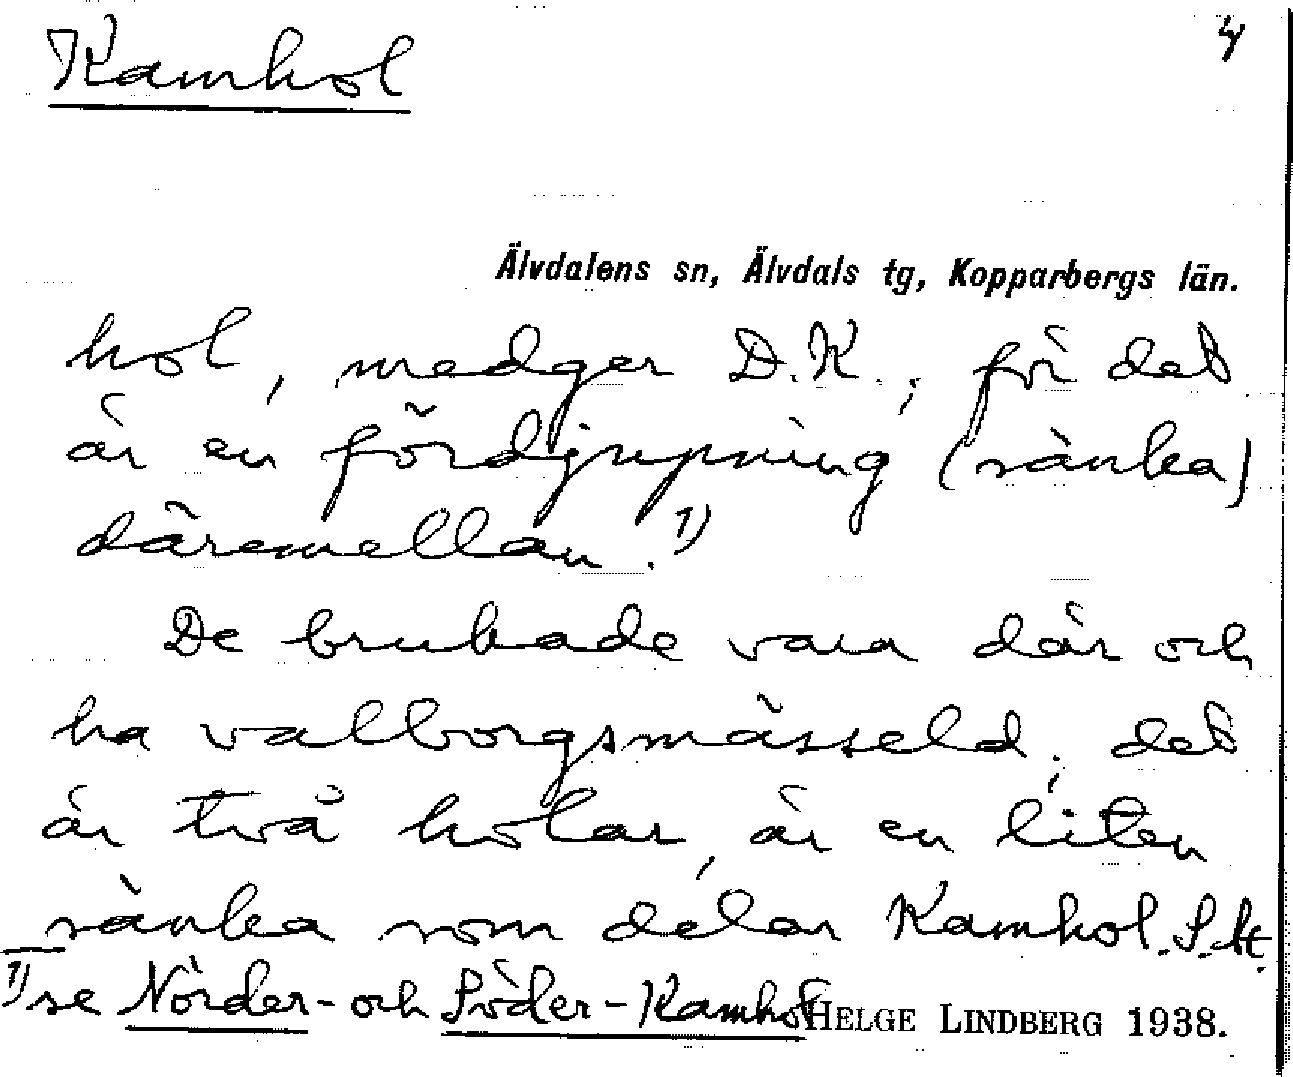 Kamhol
4
Älvdalens sn, Älvdals tg, Kopparbergs län.
hol, medger D.K.; för det
är en fördjupning (sänka)
däremellan. 1)
De brukade vara där och
ha valborgsmässeld; det
är två holar, är en liten
sänka som delar Kamhol. S. M.
1) se Nörder- och Söder-Kamhol
HELGE LINDBERG 1938.